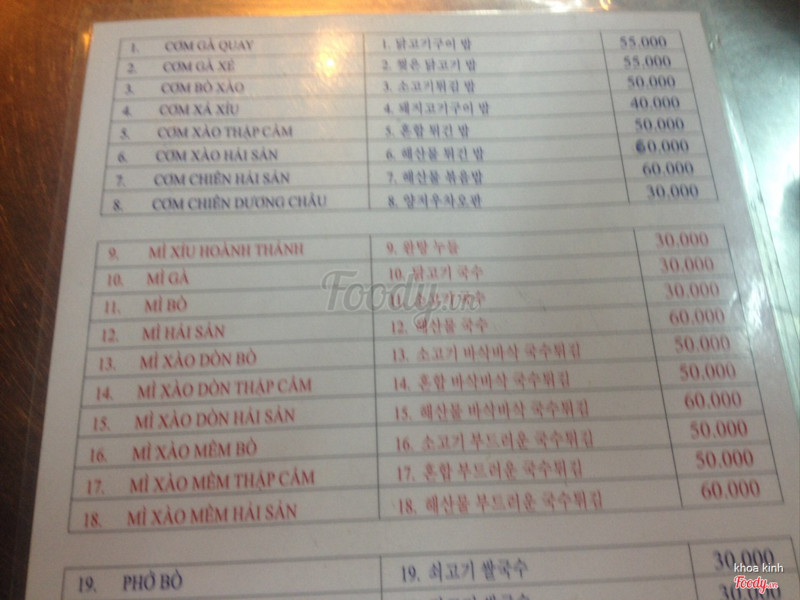 1. CƠM GÀ QUAY 1. 닭고기구이 밥 55.000
2. CƠM GÀ XÉ 2. 찢은 닭고기 밥 55.000
3. CƠM BÒ XÀO 3. 소고기튀김 밥 50.000
4. CƠM XÁ XÍU 4. 돼지고기구이 밥 40.000
5. CƠM XÀO THẬP CẨM 5. 혼합 튀긴 밥 50.000
6. CƠM XÀO HẢI SẢN 6. 해산물 튀긴 밥 60.000
7. CƠM CHIÊN HẢI SẢN 7. 해산물 볶음밥 60.000
8. CƠM CHIÊN DƯƠNG CHÂU 8. 양지우차오판 30.000
9. MÌ XÍU HOÀNH THÁNH 9. 완탕 누들 30.000
10. MÌ GÀ 10. 닭고기 국수 30.000
11. MÌ BÒ 11. 소고기 국수 30.000
12. MÌ HẢI SẢN 12. 해산물 국수 60.000
13. MÌ XÀO DÒN BÒ 13. 소고기 바삭바삭 국수튀김 50.000
14. MÌ XÀO DÒN THẬP CẨM 14. 혼합 바삭바삭 국수튀김 50.000
15. MÌ XÀO DÒN HẢI SẢN 15. 해산물 바삭바삭 국수튀김 60.000
16. MÌ XÀO MỀM BÒ 16. 소고기 부드러운 국수튀김 50.000
17. MÌ XÀO MỀM THẬP CẨM 17. 혼합 부드러운 국수튀김 50.000
18. MÌ XÀO MỀM HẢI SẢN 18. 해산물 부드러운 국수튀김 60.000
19. PHỞ BÒ 19. 쇠고기 쌀국수 30.000
30.000
Foody.vn
khoa kinh
Foody.vn